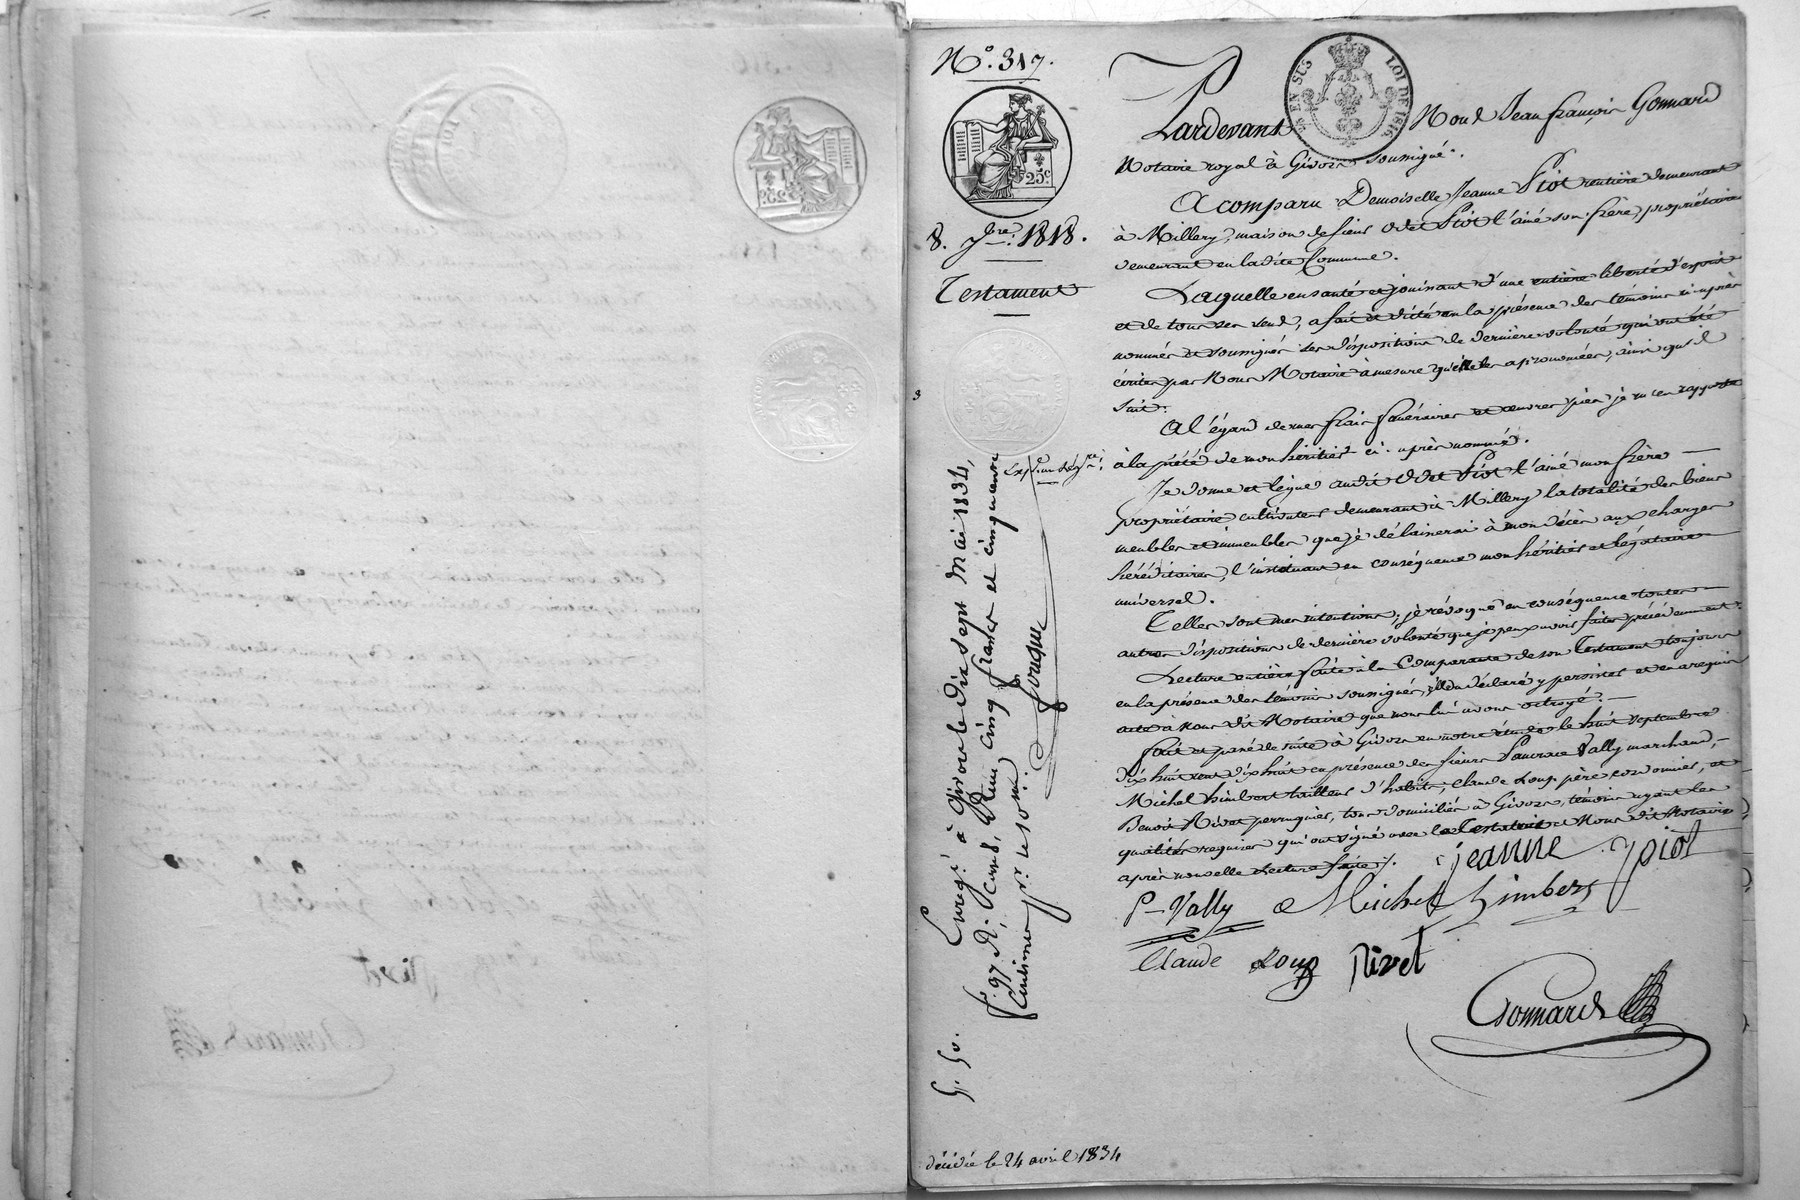 N° 317.
25 EN SUS LOI DE 1816
25c
8. 7bre. 1818.
Testament
Pardevant Nous Jean françois Gonnard
Notaire royal à Givors soussigné.
A comparu Demoiselle Jeanne Piot rentière demeurant
à Millery, maison de sieur Odet Piot l'ainé son frère propriétaire
demeurant en ladite Commune.
Laquelle en santé et jouissant d'une entière liberté d'esprit
et de tous ses sens, a fait et dicté en la présence des témoins ci-après
nommés et soussignés ses dispositions de dernière volonté qui ont été
écrites par Nous Notaire à mesure qu'elle les a prononcées, ainsi qu'il
suit.
A l'égard de mes frais funéraires et œuvres pies je m'en rapporte
à la piété de mon héritier ci-après nommé.
Je donne et lègue audit Odet Piot l'ainé mon frère
propriétaire cultivateur demeurant à Millery la totalité des biens
meubles et immeubles que je délaisserai à mon décès aux charges
héréditaires, l'instituant en conséquence mon héritier et légataire
universel.
Telles sont mes intentions; je révoque en conséquence toutes
autres dispositions de dernière volonté que je peux avoir faites précédemment.
Lecture entière faite à la Comparante de son Testament toujours
en la présence des témoins soussignés, elle a déclaré y persister et en a requis
acte à Nous dit Notaire que nous lui avons octroyé.
fait et passé de suite à Givors en notre étude le huit Septembre
dix huit cent dix huit en présence des sieurs Pancrace Vally marchand,
Michel Himbert tailleur d'habits, Claude Loup père cordonnier, et
Benoit Rivet perruquier, tous domiciliés à Givors, témoins ayant les
qualités requises qui ont signé avec la Testatrice et Nous dit Notaire
après nouvelle Lecture faite ./.
jeanne piot
P-Vally Michel himbert
Claude Loup Rivet
Gonnard
Enregé. à Givors le Dix sept Mai 1834,
f°. 97 R°. Cases 8, Reçu cinq francs et cinquante
Centimes pr. le 10me.
Fouque
décédée le 24 avril 1834